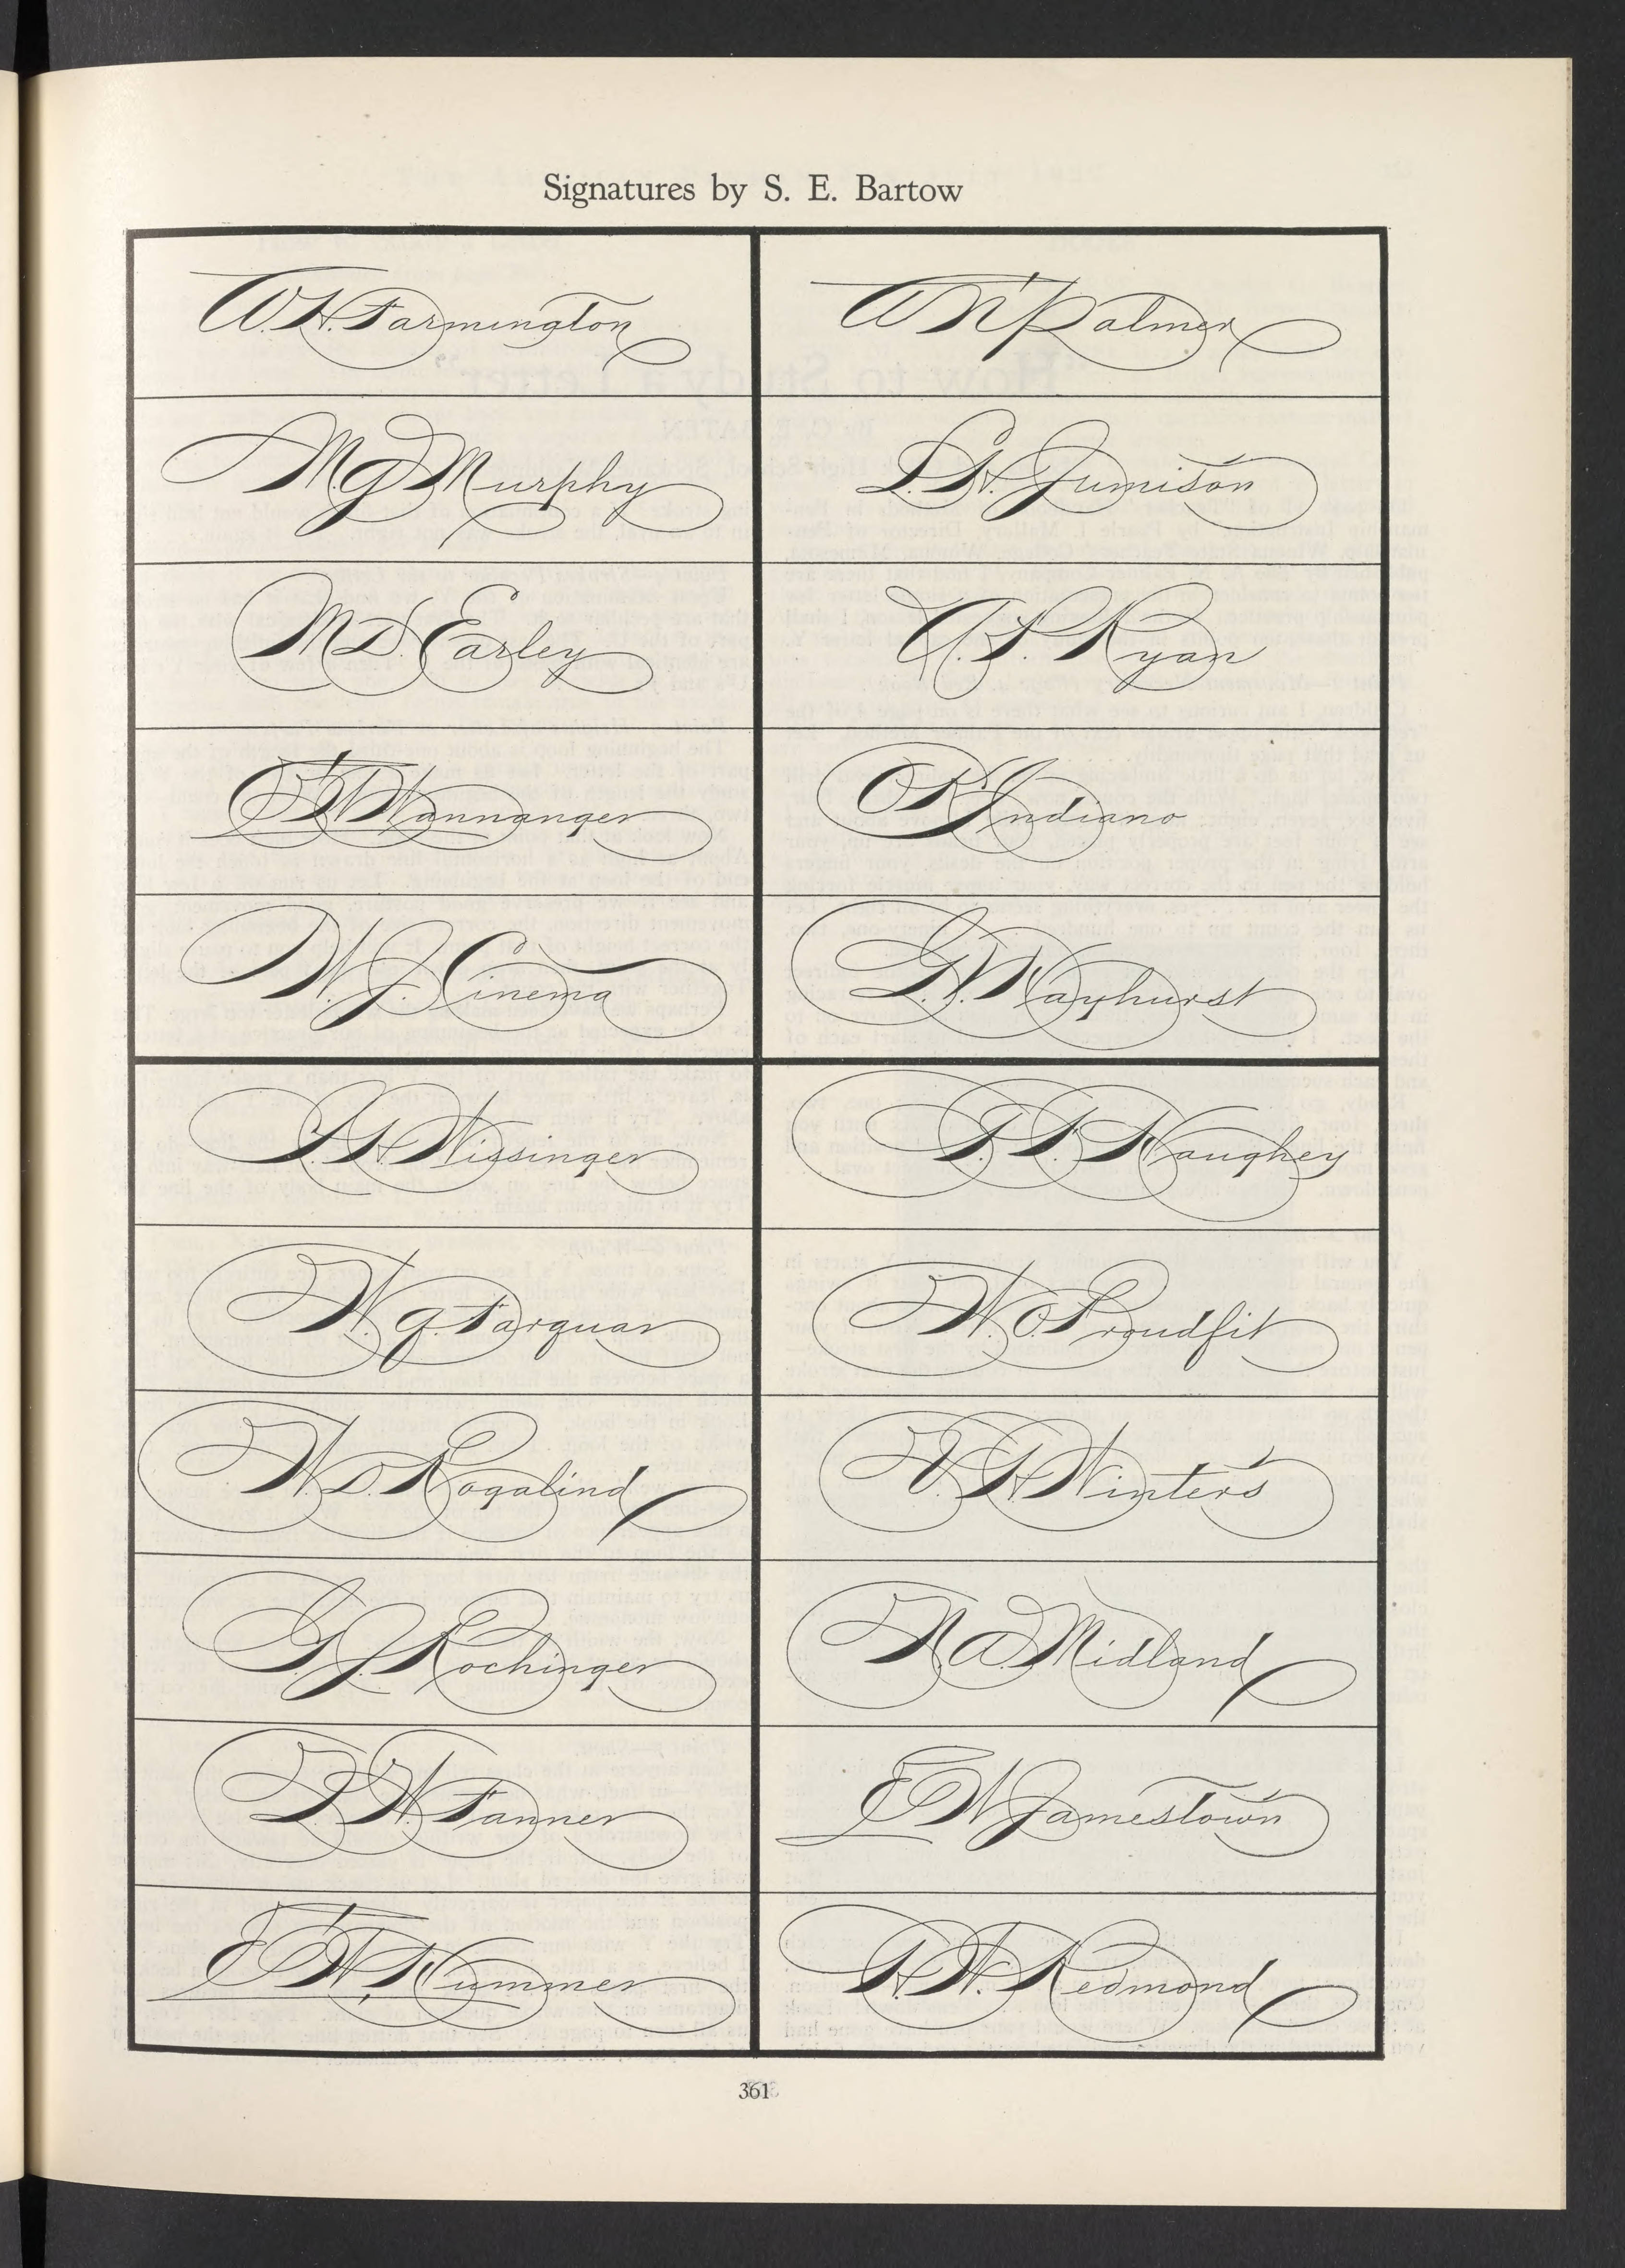 Signatures by S. E. Bartow
W. H. Farmington
W N Palmer
M. G. Murphy
L. H. Jumison
M D. Earley
A. P. Ryan
Wannanger
O K Indiano
W. J. Cinema
G. W. Wayhurst
Wissinger
Naughey
W. G. Farquar
W. O. Proudfit
W. D. Rogalind
V. H. Winters
G. J. Rochinger
N. A. Midland
Fanner
E W Jamestown
Nummer
H. W. Redmond
361